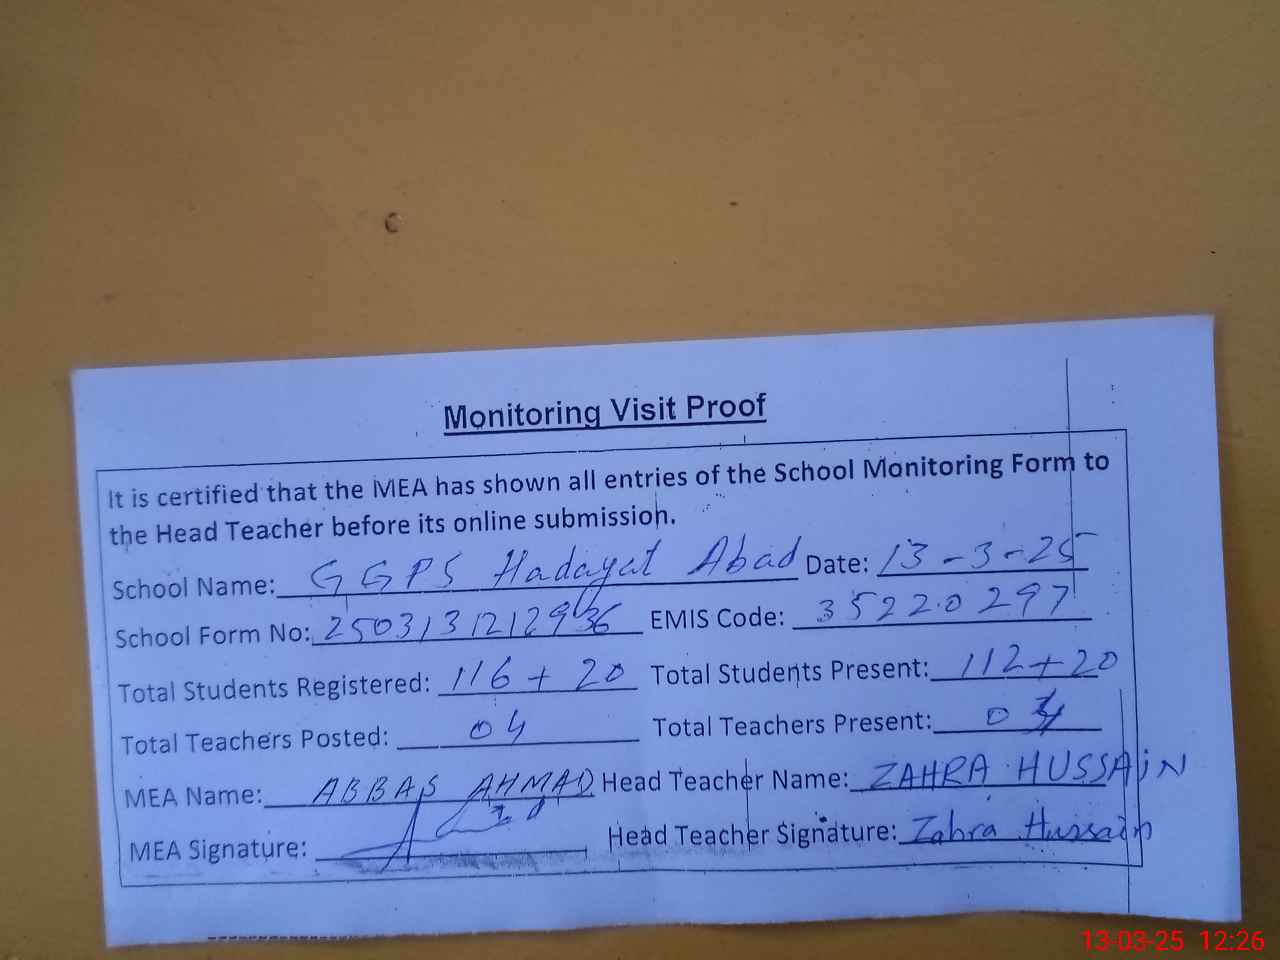 Monitoring Visit Proof
It is certified that the MEA has shown all entries of the School Monitoring Form to
the Head Teacher before its online submission.
School Name: GGPS Hadayat Abad Date: 13-3-25
School Form No: 2503131212936 EMIS Code: 35220297
Total Students Registered: 116 + 20 Total Students Present: 112 + 20
Total Teachers Posted: 04 Total Teachers Present:
MEA Name: ABBAS AHMAD Head Teacher Name: ZAHRA HUSSAIN
MEA Signature: Head Teacher Signature: Zahra Hussain
13-03-25 12:26